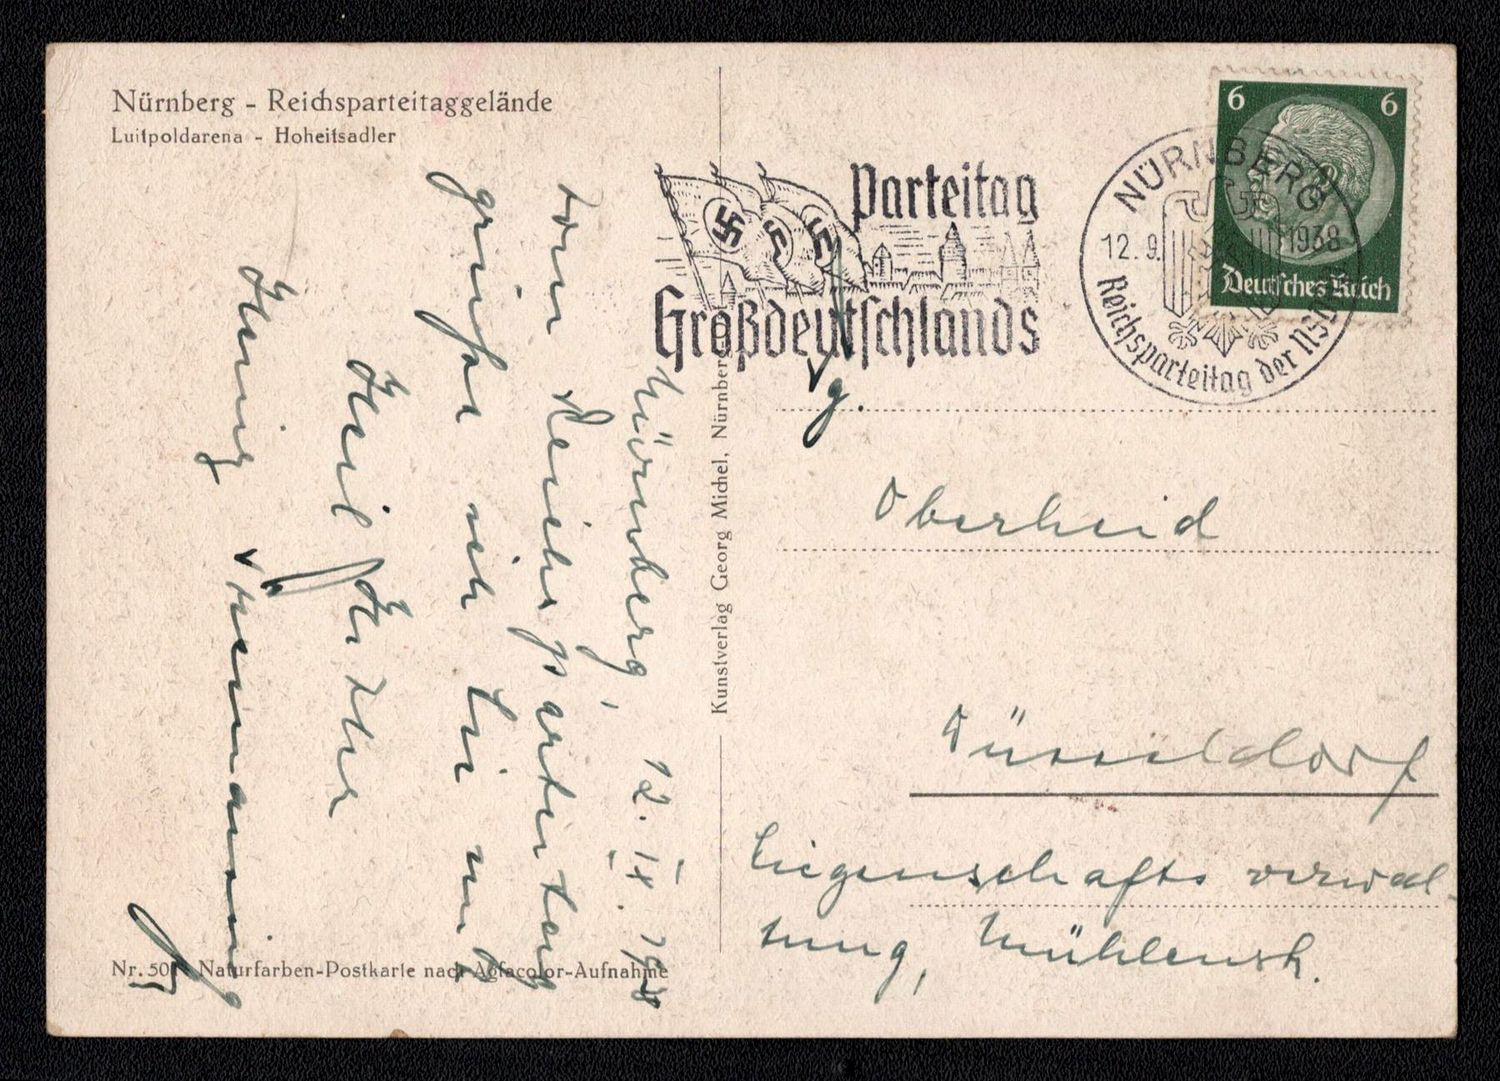 Nürnberg - Reichsparteitaggelände
Luitpoldarena - Hoheitsadler
Nürnberg, 12. IX. 1938
vom Reichsparteitag
grüßt
Heil Hitler
Nr. 50 Naturfarben-Postkarte nach Agfacolor-Aufnahme
Kunstverlag Georg Michel, Nürnberg
Parteitag
Großdeutschlands
NÜRNBERG
12.9. 1938
Reichsparteitag der NSD
6 6
Deutsches Reich
Pg.
Oberheid
Düsseldorf
Liegenschaftsverwal-
tung, Mühlenstr.